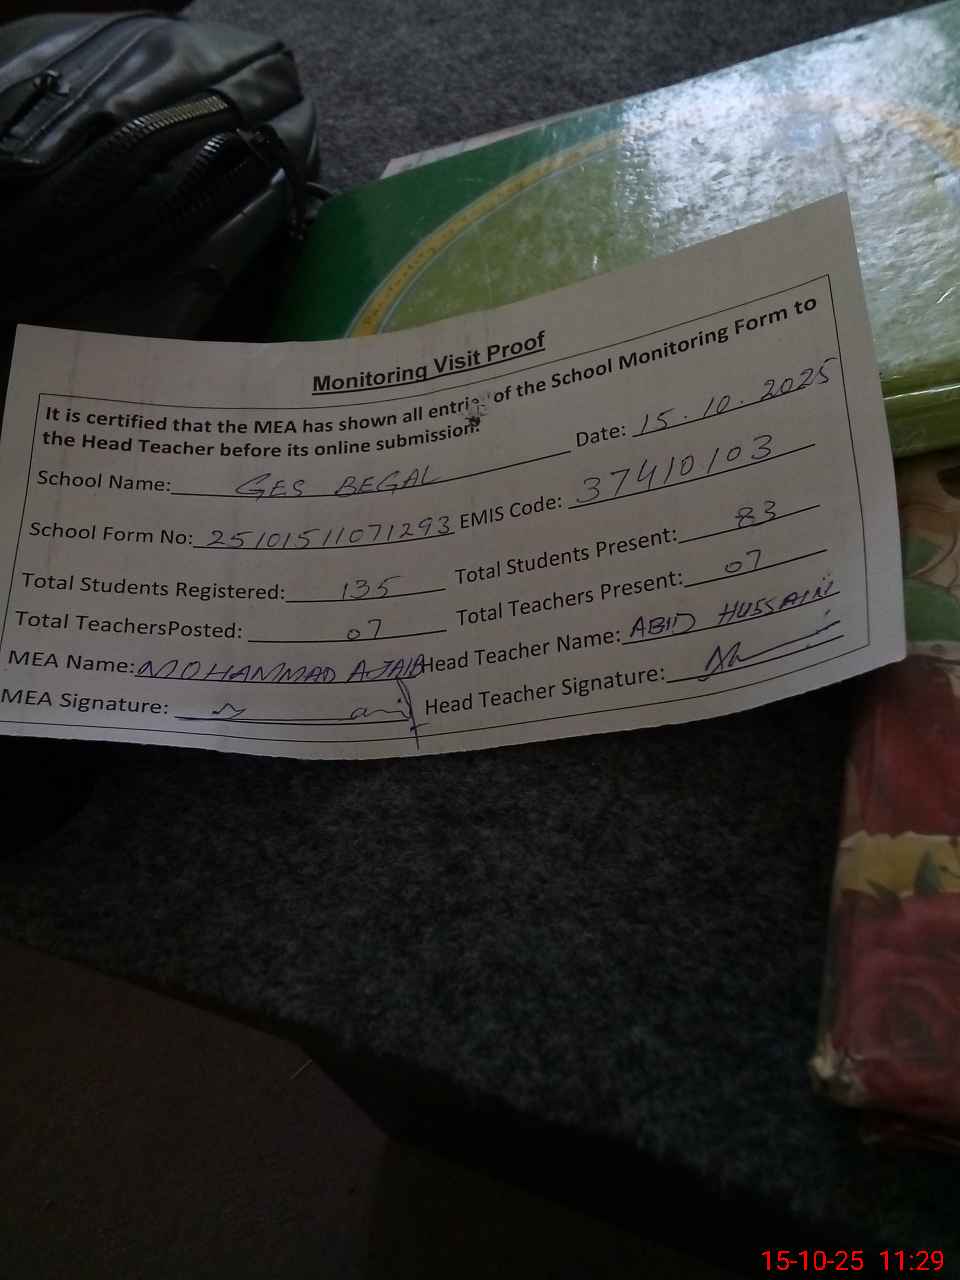 Monitoring Visit Proof
It is certified that the MEA has shown all entries of the School Monitoring Form to
the Head Teacher before its online submission.
Date: 15.10.2025
School Name: GES BEGAL
School Form No: 25101511071293 EMIS Code: 37410103
Total Students Registered: 135 Total Students Present: 83
Total TeachersPosted: 07 Total Teachers Present: 07
MEA Name: MOHAMMAD AJAIB Head Teacher Name: ABID HUSSAIN
MEA Signature: Head Teacher Signature:
15-10-25 11:29